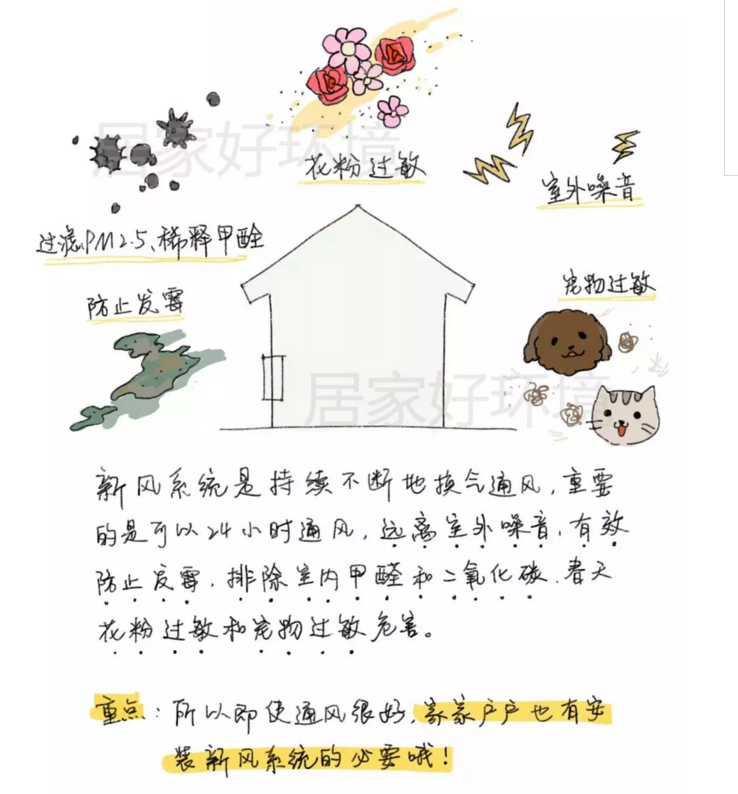 花粉过敏
室外噪音
过滤PM2.5、稀释甲醛
宠物过敏
防止发霉
居家好环境
居家好环境
新风系统是持续不断地换气通风，重要
的是可以24小时通风，远离室外噪音，有效
防止发霉，排除室内甲醛和二氧化碳、春天
花粉过敏和宠物过敏危害。
重点：所以即使通风很好，家家户户也有安
装新风系统的必要哦！